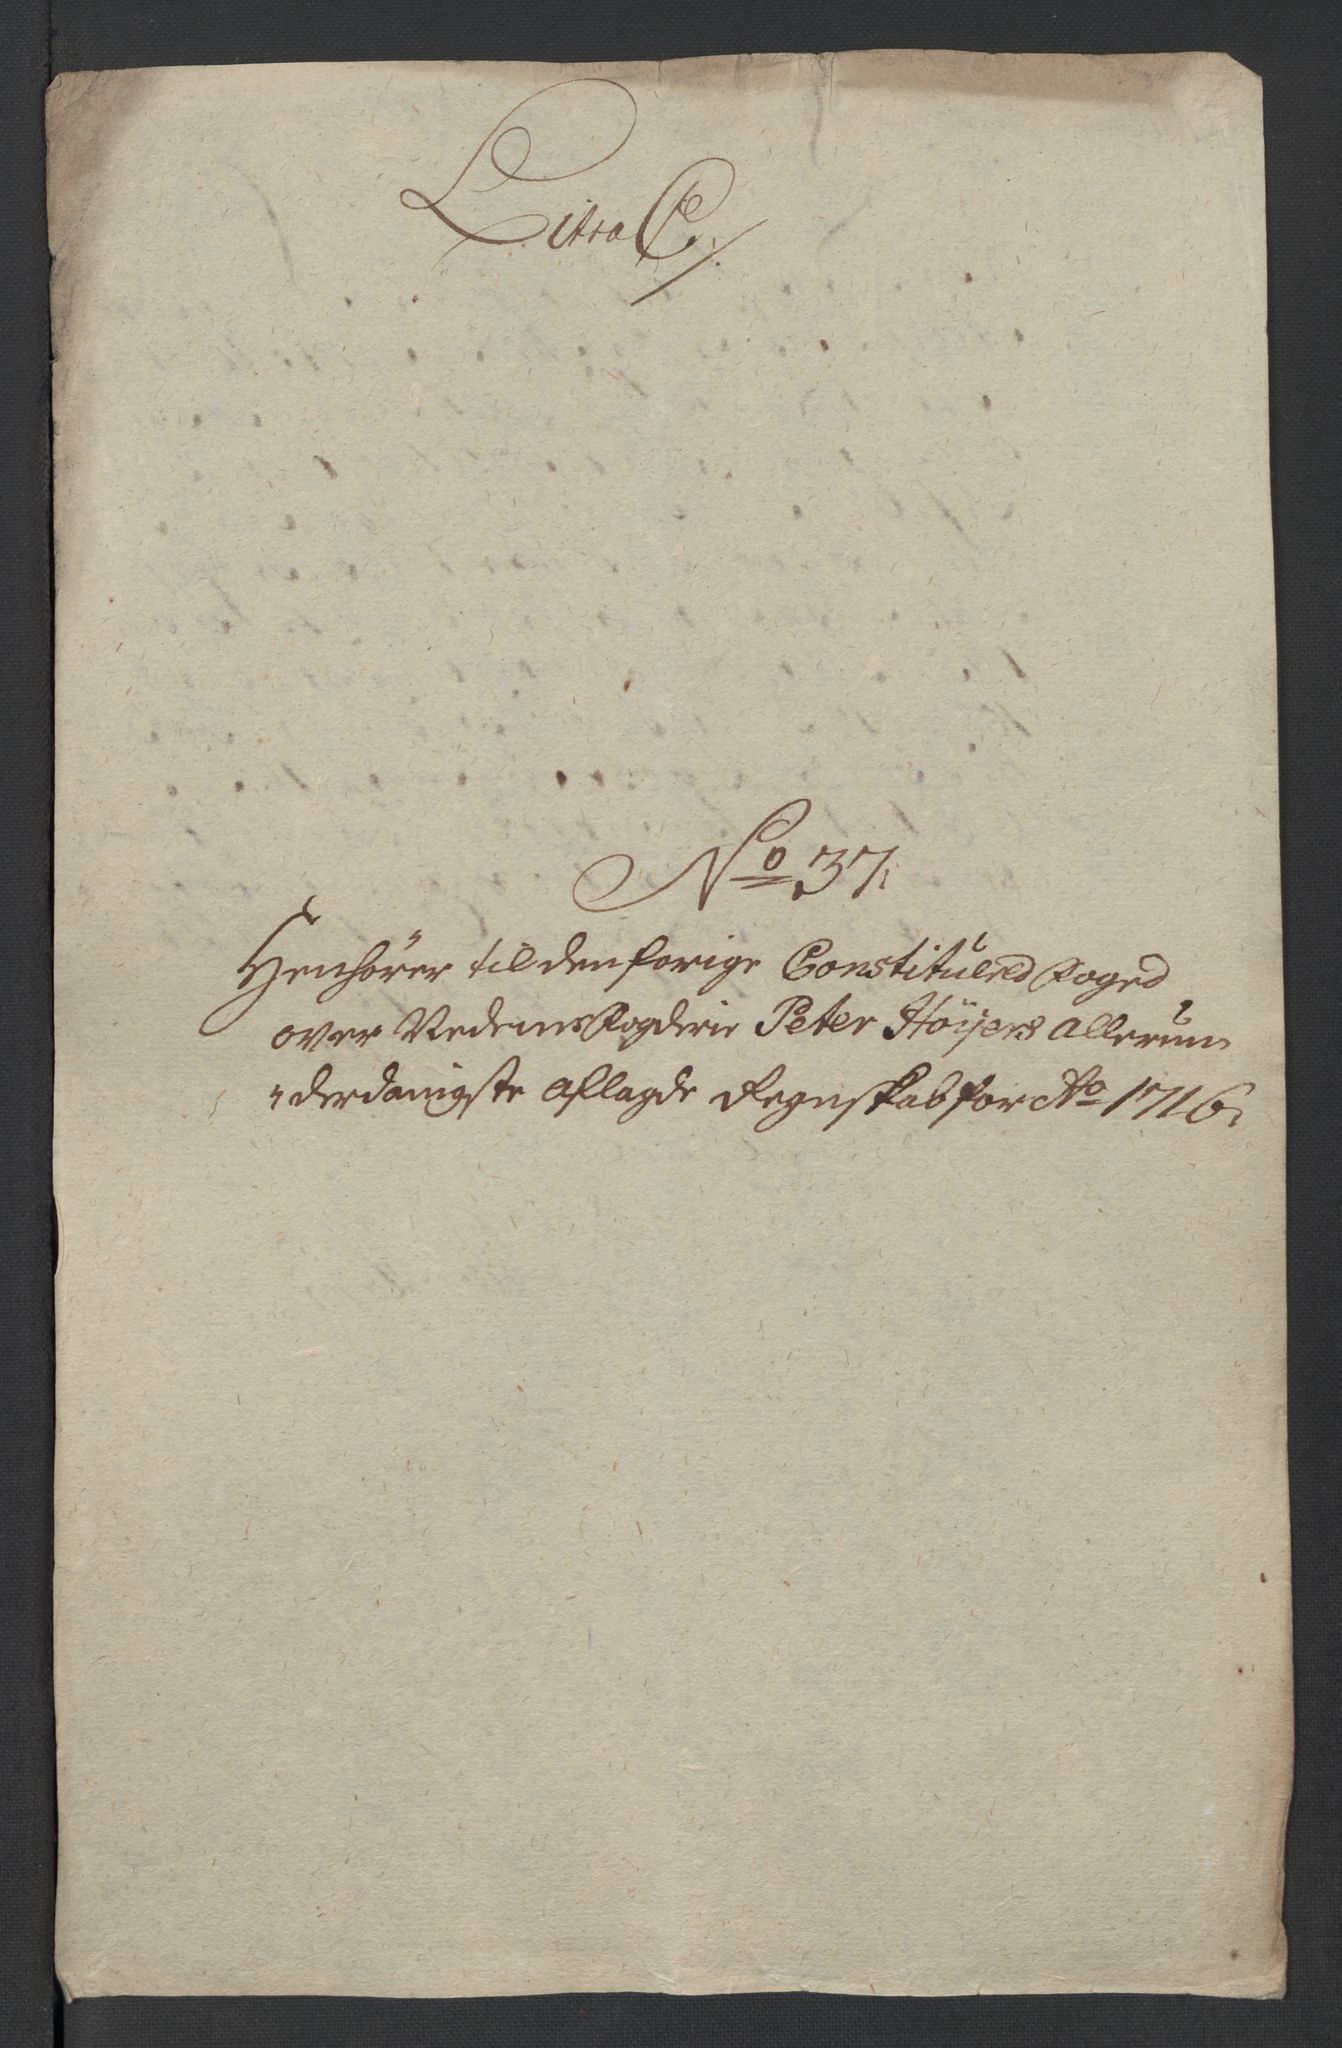 Litra C.
No 37.
Henhörer til den forige Constitulred Foged
over Nedenes Fogderie Peter Höÿers allerun-
derdanigste aflagde Regnskab for Ao 1716.